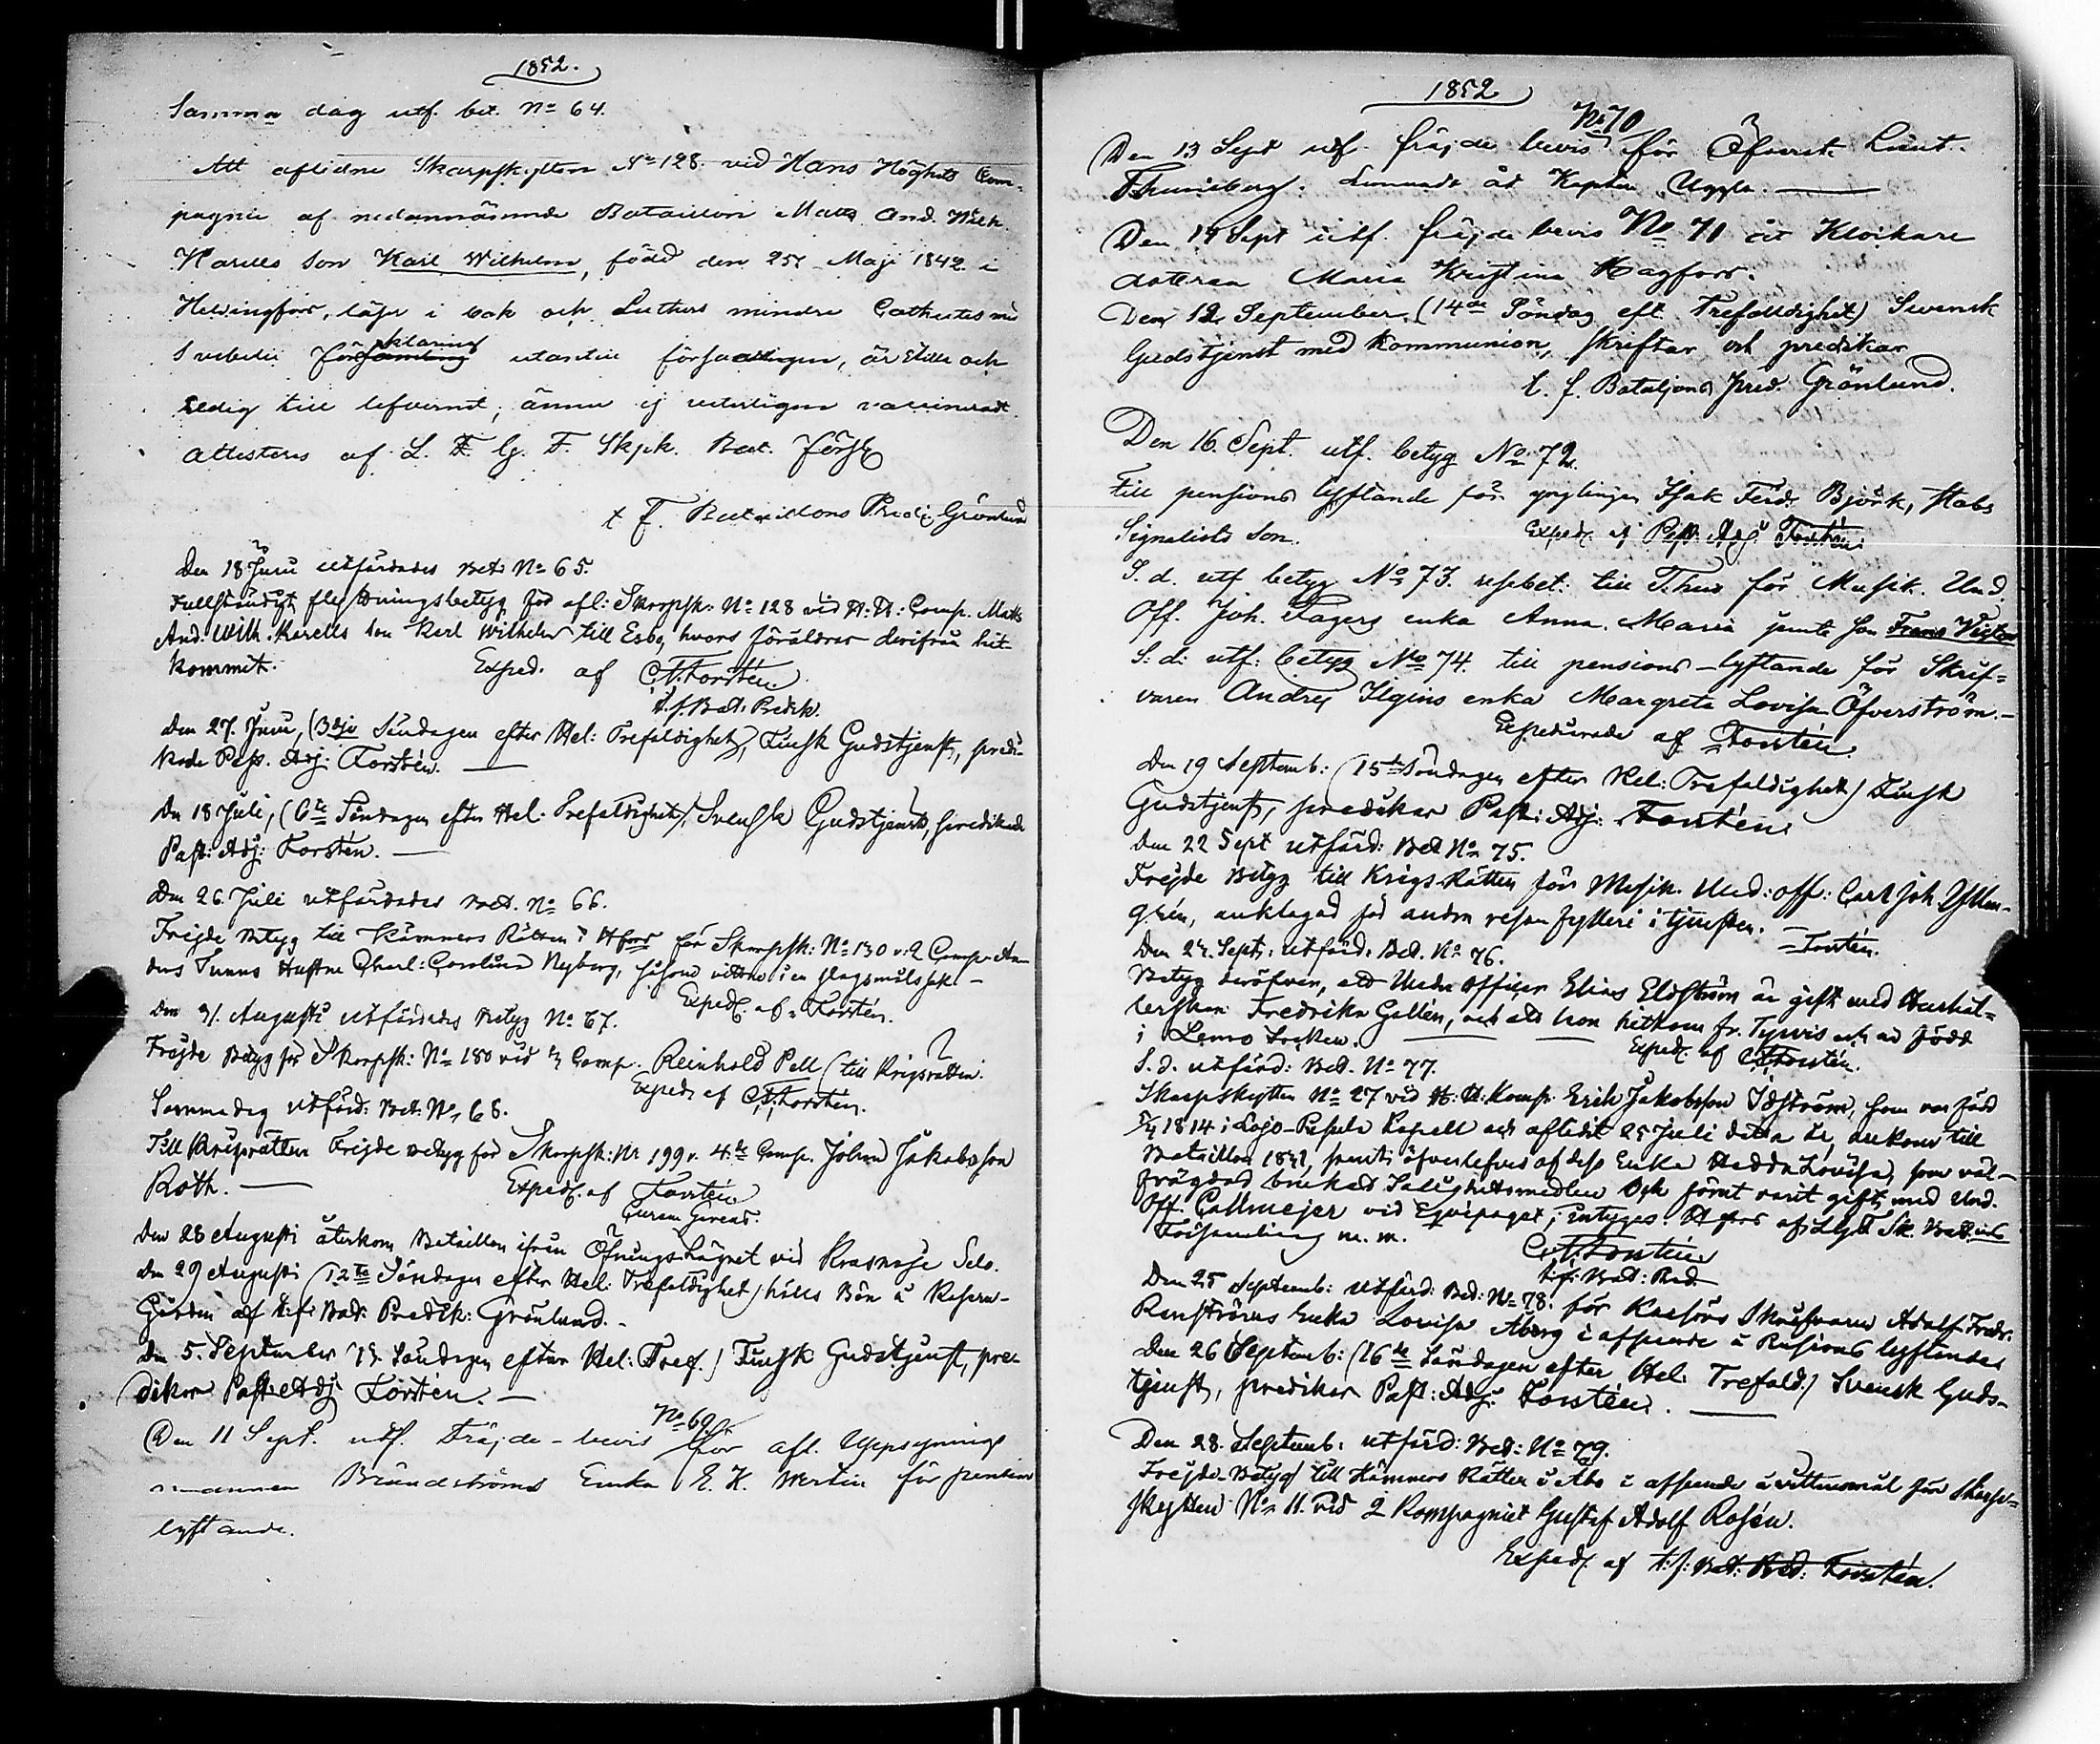 1852.
Samma dag utf. bet. No 64.
Att aflidne Skarpskytten No 128. vid Hans Höghets Com-
pagnie af nedannämnde Bataillon Matts And. Wilh.
Karells son Karl Wilhelm, född den 25 Maji 1842 i
Helsingfors, läser i bok och Luthers mindre Cathekes med
Svebelii förklaring utantill försvarligen, är stilla och
sedig till lefvernet, ännu ej vaccinerad
attesteras af L. F. G. F. Skpk. Bat. Förs
t f. Bataillons Predik. Grönlund
Den 18 Juni utfärdades Bet: No 65.
Fullständigt flyttningsbetyg för afl: Skarpsk: No 128 vid H. H: Comp. Matts
And. Wilh. Karells son Karl Wilhelm till Esbo, hvars föräldrar derifrån hit-
kommit. Exped. af C. A. Forstén
t. f. Bat. Predik.
Den 27. Juni, (3dje Söndagen efter Hel: Trefaldighet), Finsk Gudstjenst, predi-
kade Past. Adj: Forstén.
Den 18 Juli, (6te Söndagen efter Hel. Trefaldighet), Svensk Gudstjenst, predikade
Past: Adj: Forstén.
Den 26. Juli utfärdades Bet. No 66.
Frejde Betyg till Kämners Rätten i Hfors för Skarpsk: No 130 v. 2 Comp. An-
ders Hustru Charl: Carolina Nyberg, såsom vittne i en slagsmålssak.
Exped. af Forstén.
Den 31. Augusti utfärdades Betyg No 67.
Frejde Betyg för Skarpsk: No 180 vid Comp. Reinhold Pell (till Krigsrätten.
Exped. af C. A. Forstén.
Samma dag utfärd: Bet: No 68.
Till Krigsrätten Frejde betyg för Skarpsk: No 199 v. 4:de Comp. Johan Jakobsson
Roth. Exped. af Forstén
Curam Gerens.
Den 28 Augusti återkom Bataillon ifrån Öfnings Lägret vid Krasnoje Selo.
Den 29 Augusti (12te Söndagen efter Hel: Trefaldighet) hålls Bön å Kasern-
Gården af t. f. Bat: Predik: Grönlund.
Den 5. September 13. Söndagen efter Hel: Tref.) Finsk Gudstjenst, pre-
dikar Past. Adj. Forstén.
No 69
Den 11 Sept. utf. Fräjde-bevis för afl. Uppsynings
mannen Brandströms Enka E. K. Wertin för pension
lyftande.
1852
No 70
Den 13 Sept utf. fräjde bevis för Öfverst. Lieut.
Thuneberg. Lemnade åt Kapten Uggla.
Den 14 Sept utf. fräjde bevis No 71 åt Klockare
dottren Maria Kristina Hagfors.
Den 12 September (14de Söndag eft. Trefaldighet) Svensk
Gudstjenst med Kommunion, skriftar och predikar
t. f. Bataljons Pred. Grönlund.
Den 16. Sept. utf. betyg No 72.
Till pensions lyftande för ynglingen Isak Ferd. Björk, Stabs
Signalists son. Exped. af Past. Adj. Forstén
S. d. utf betyg No 73. till Thus för Musik. Und.
Off. Joh. Fagers enka Anna Maria jemte son Frans Victor
S: d: utf: betyg No 74. till pensions-lyftande för Skrif-
varen Andrej Ilgins enka Margreta Lovisa Öfverström.
Expedierade af Forstén.
Den 19 Septemb: (15de Söndagen efter Hel: Trefaldighet) Finsk
Gudstjenst, predikar Past: Adj: Forstén.
Den 22 Sept utfärd: Bet No 75.
Frejde Betyg till Krigs-Rätten för Musik. Und: off: Carl Joh.
anklagad för andra resan fylleri i tjensten.
Forstén.
Den 24. Sept: utfärd: Bet. No 76.
Betyg deröfver, att Under Officer Elias Eldström är gift med Hushål-
lerskan Fredrika Gallén, och att hon hitkom fr. Tyrvis och är född
i Lemo Socken. Exped. af C. A. Forstén.
S. d. utfärd: Bet. No 77.
Skarpskytten No 27 vid H. H. Komp. Erik Jakobsson Idström, som var född
1814 i Lojo-Pusula Kapell och aflidit 25 Juli detta år, ankom till
Bataillon 1841, samt öfverlefves af dess Enka Hedda Lovisa, som väl-
frägdad brukat Salighetsmedlen och förut varit gift med Und.
Off. Callmejer vid Equipaget; intygas. Hfors af L.G. Sk. Batt.
Församling m. m. C. A. Forstén
t. f. Bat: Pred
Den 25 Septemb: utfärd: Bet: No 78. för Skrifvaren Adolf Fredr.
Renströms Enka Lovisa Åberg i afseende å Pensions lyftande
Den 26 Septemb: (16de Söndagen efter Hel. Trefald.) Svensk Guds-
tjenst, predikar Past: Adj: Forstén.
Den 28. Septemb: utfärd: Bet: No 79.
Frejde-Betyg till Kämners Rätten i Åbo i afseende å vittnesmål för Skarp-
skytten No 11. vid 2 Kompagniet Gustaf Adolf Rosén.
Exped. af t. f. Bat: Pred: Forstén.